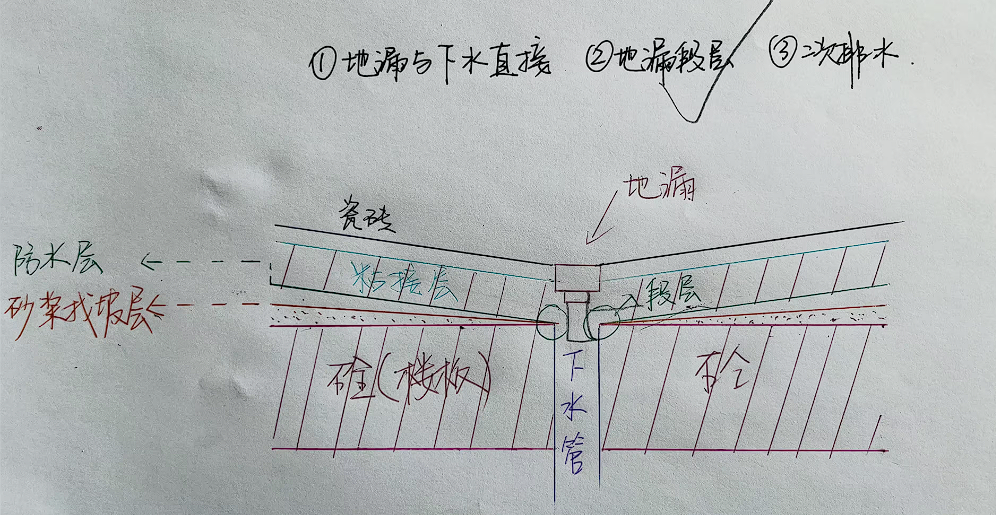 ①地漏与下水直接 ②地漏段层 ③二次排水.
地漏
瓷砖
防水层
粘接层
段层
砂浆找坡层
砼(楼板)
砼
下水管